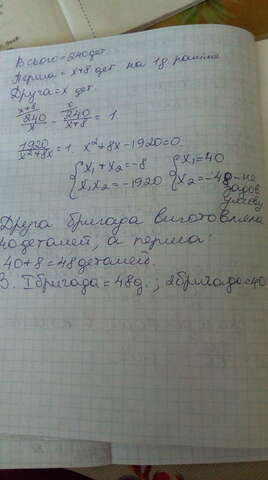 Всього - 240 дет.
Перша = x+8 дет. на 1д раніше
Друга = x дет.
x+8 x
240/x - 240/x+8 = 1
1920/x²+8x = 1 x²+8x-1920=0
{x₁+x₂=-8 {x₁=40
{x₁x₂=-1920 {x₂=-48 - не
задов
умову
Друга бригада виготовляла
40 деталей, а перша:
40+8=48 деталей.
В. I бригада = 48д.; 2 бригада = 40